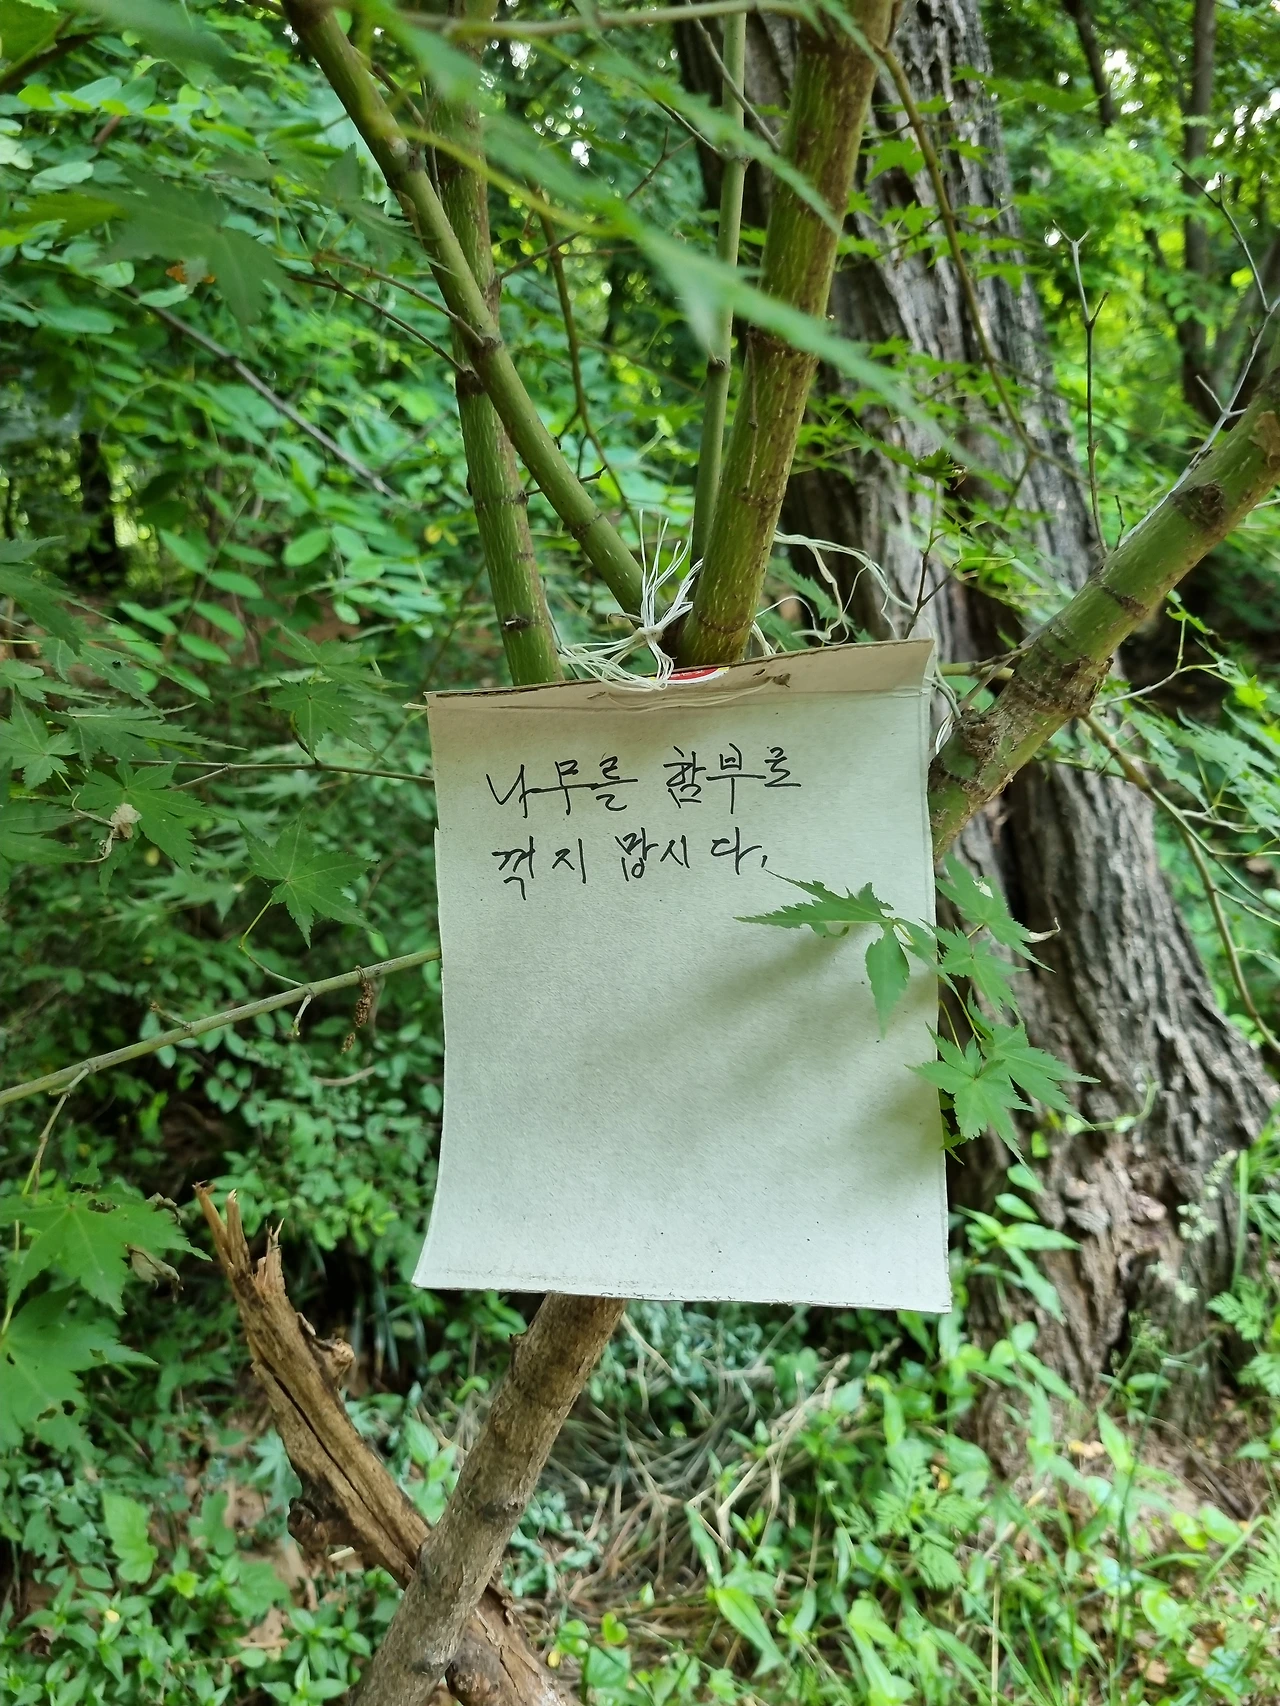 나무를 함부로
꺽지 맙시다.